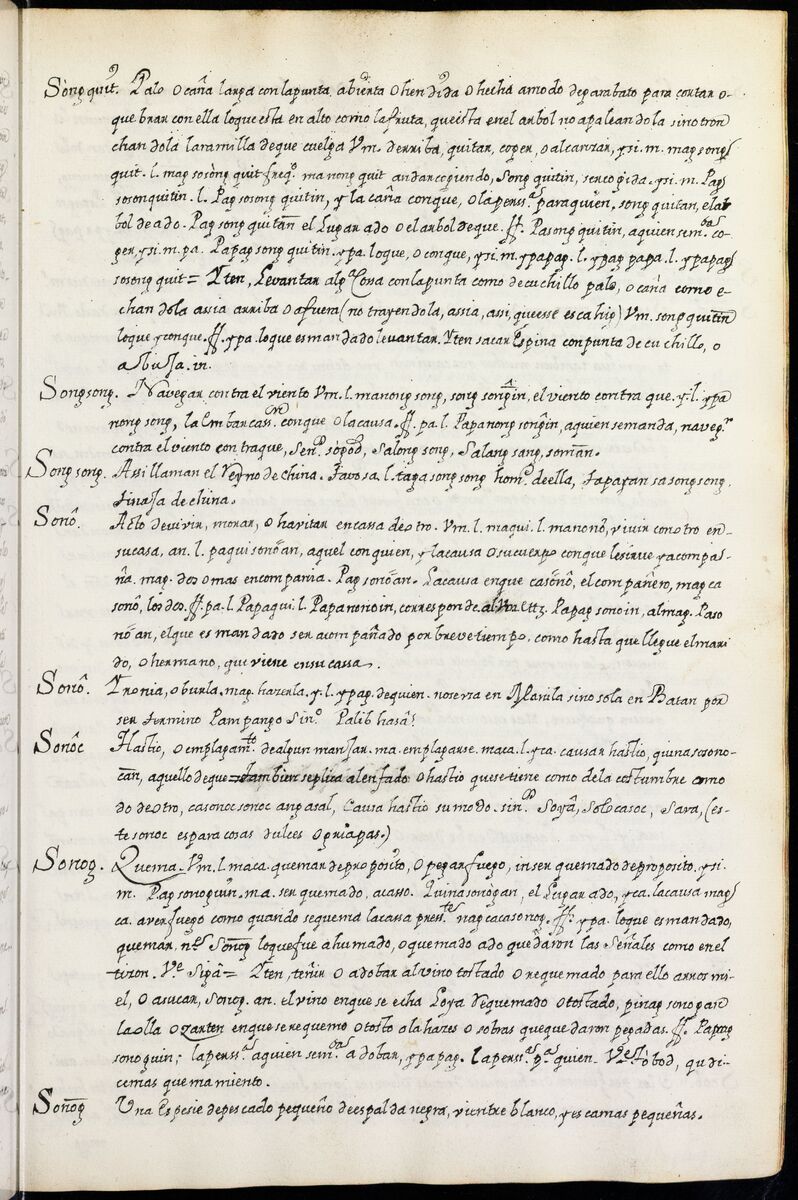 Sòng̃quit. Palo o caña larga con la punta, abierta o hendida o hecha a modo de garabato para cortar o
que brar con ella loque està en alto como la fruta, que està enel arbol no apaleandola sino tron
chandola la ramilla de que cuelga Vm. derriba, quitar, coger, o alcanzar, ysi. m. mag song̃
quit. l. mag sosòng̃ quit freq.º manong quit andar cogiendo, song̃ quitin, ser cogida. ysi. m. Pag
sosonquitin. l. Pag sosong quitin, y la caña conque, o la perss.ª para quien, song quitan, el ar
bol de ado. Pag song quitan el Lugar ado o el arbol de que. ff. Pasong quitin, aquien sem.da co-
ger, ysi. m. pa. Papag song quitin. ypa. loque, o conque, ysi. m. ypapag. l. ypag papa. l. ypapag
sosong quit = Yten, Levantar alg.ª Cossa con la punta como de cuchillo palo, o caña como e-
chandola assia arriba o afuera (no trayendola, assia, assi, que esse es cahig) Vm. song quitin
loque yconque. ff. ypa. loque es mandado levantar. Yten sacar Espina con punta de cuchillo, o
. in.
Songsong. Navegar contra el viento Vm. l. manong song, song songin, el viento contra que. y. l. ypa
nong song, la Embarcass.on conque o la causa. ff. pa. l. Papanong songin, aquien se manda, naveg.r
contra el viento contraque, Sen.
Songsong. Assi llaman el Reyno de china. l. taga song song hom.e de ella,
de china.
Sonô. Acto de vivir, morar, o havitar en cassa de otro. Vm. l. maqui. l. manonô, vivir con otro en
su casa, an. l. paquisonoan, aquel con quien, y la causa o su cuerpo conque le sirve y acompa-
ña. mag. dos o mas en compania. Pag sonoan. La causa en que casonô, el compañero, mag ca
sonô, los dos. ff. pa. l. Papaqui. l. Papanonoin, corresponde al Papag sonoin, al mag. Paso
noan, el que es mandado ser acompañado por breve tiempo, como hasta que llegue el mari
do, o hermano, que viene en su cassa.
Sonô. Yronia, o burla. mag. hazerla. y. l. ypag. de quien. no se usa en Manila sino sola en Batan por
ser termino Pampango Sin.º Palibhasâ.
Sonôc Hastio, o emplagam.to de algun manjar. ma. emplagarse. maca. l. yca. causar hastio, quinasosono-
can, aquello de que = tambien se plica al enfado o hastio que se tiene como de la costumbre como
do de otro, casonoc sonoc ang asal, Causa hastio su modo. sin. Soyâ, Solocasoc, Sava, (es-
te sonoc es para cosas dulces o pringas.)
Sonog. Quema. Vm. l. maca. quemar de proposito, o pegar fuego, in ser quemado de proposito. ysi.
m. Pag sonoguin. ma. ser quemado, acasso. Quinasonogan, el Lugar ado, yca. la causa mag
ca. aver fuego como quando se quema la cassa press.te nag cacasonog. ff. ypa. loque es mandado,
quemar, Sonog loque fue ahumado, o quemado ado quedaron las señales como en el
tizon. V.e Sigâ = Yten, teñir o adobar al vino tostado o requemado para ello arros mi-
el, o asucar, sonog. an. el vino en que se echa Loya de quemado o tostado, pinag sonogan
la olla o zarten en que se requemo o tosto o lahazes o sobras que quedaron pegadas. ff. Papag
sonoguin; la perss.ª aquien sem.da adobar, ypapag. la perss.ª p.ª quien. V.e Tobod, qu di-
cimas quemamiento.
Sonog Una Espesie de pescado pequeño de espalda negra, vientre blanco, y escamas pequeñas.